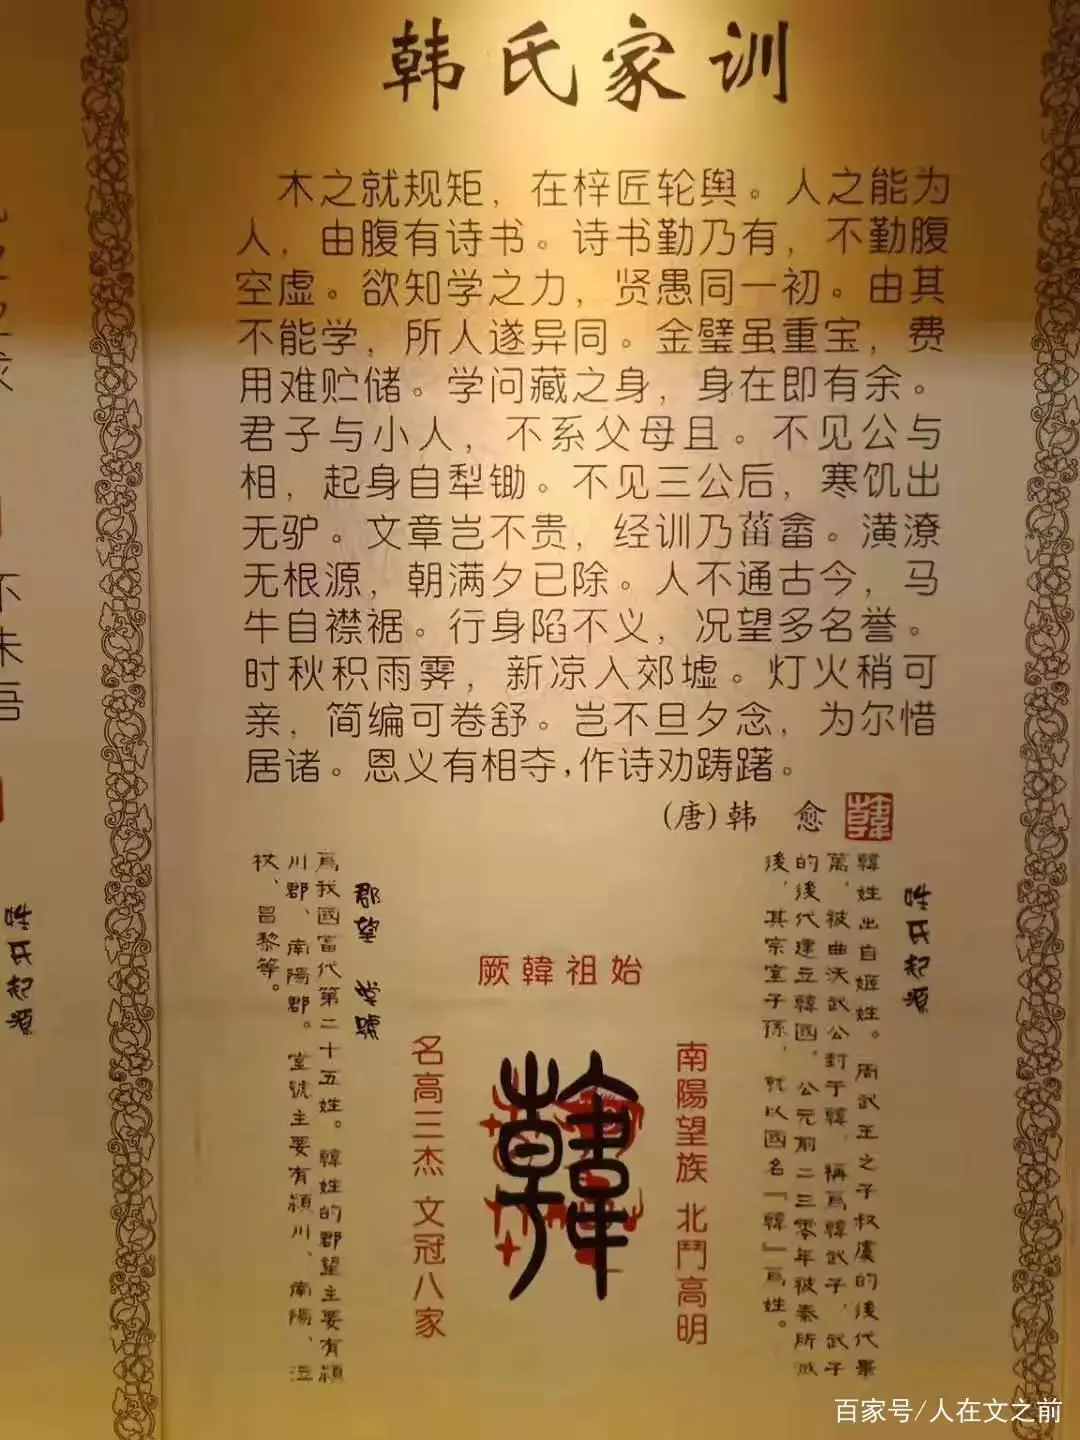 韩氏家训
木之就规矩，在梓匠轮舆。人之能为
人，由腹有诗书。诗书勤乃有，不勤腹
空虚。欲知学之力，贤愚同一初。由其
不能学，所人遂异同。金璧虽重宝，费
用难贮储。学问藏之身，身在即有余。
君子与小人，不系父母且。不见公与
相，起身自犁锄。不见三公后，寒饥出
无驴。文章岂不贵，经训乃菑畲。潢潦
无根源，朝满夕已除。人不通古今，马
牛自襟裾。行身陷不义，况望多名誉。
时秋积雨霁，新凉入郊墟。灯火稍可
亲，简编可卷舒。岂不旦夕念，为尔惜
居诸。恩义有相夺，作诗劝踌躇。
(唐)韩 愈 韓
姓氏起源
韓姓出自姬姓。周武王之子权虞的後代畢
萬，被曲沃武公封于韓，稱爲韓武子，武子
的後代建立韓國，公元前二三零年被秦所滅
後，其宗室子孫，就以國名「韓」爲姓。
厥韓祖始
南陽望族 北鬥高明
韓
名高三杰 文冠八家
郡望 堂號
爲我國當代第二十五姓。韓姓的郡望主要有潁
川郡、南陽郡。堂號主要有潁川、南陽、泣
杖、昌黎等。
姓氏起源
不
未
吾
百家号/人在文之前